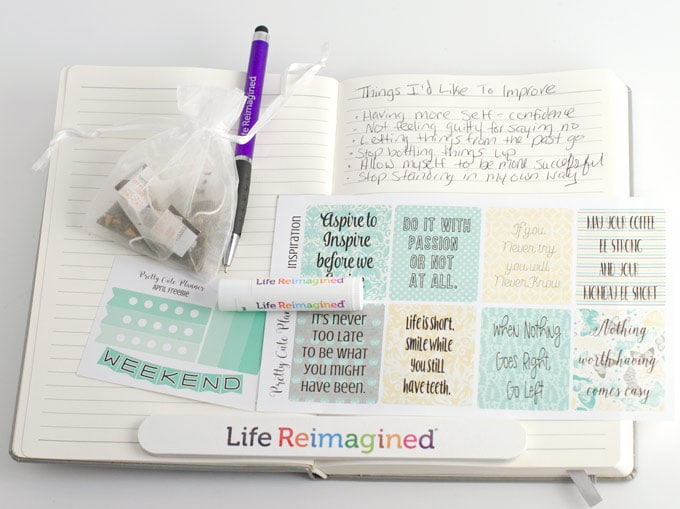 Things I'd Like To Improve
• Having more self-confidence
• Not feeling guilty for saying no
• Letting things from the past go
• Stop bottling things up
• Allow myself to be more successful
• Stop Standing in my own way
Life Reimagined
INSPIRATION
Aspire to
Inspire
before we
DO IT WITH
PASSION
OR NOT
AT ALL.
If you
Never try
you will
Never Know
MAY YOUR COFFEE
BE STRONG
AND YOUR
MONDAY BE SHORT
Pretty Cute Planner
APRIL FREEBIE
WEEKEND
Life Reimagined
Life Reimagined
Pretty Cute Plan
IT'S NEVER
TOO LATE
TO BE WHAT
YOU MIGHT
HAVE BEEN.
Life is short,
smile while
you still
have teeth.
When Nothing
Goes Right,
Go Left
Nothing
worth having
comes easy
Life Reimagined®